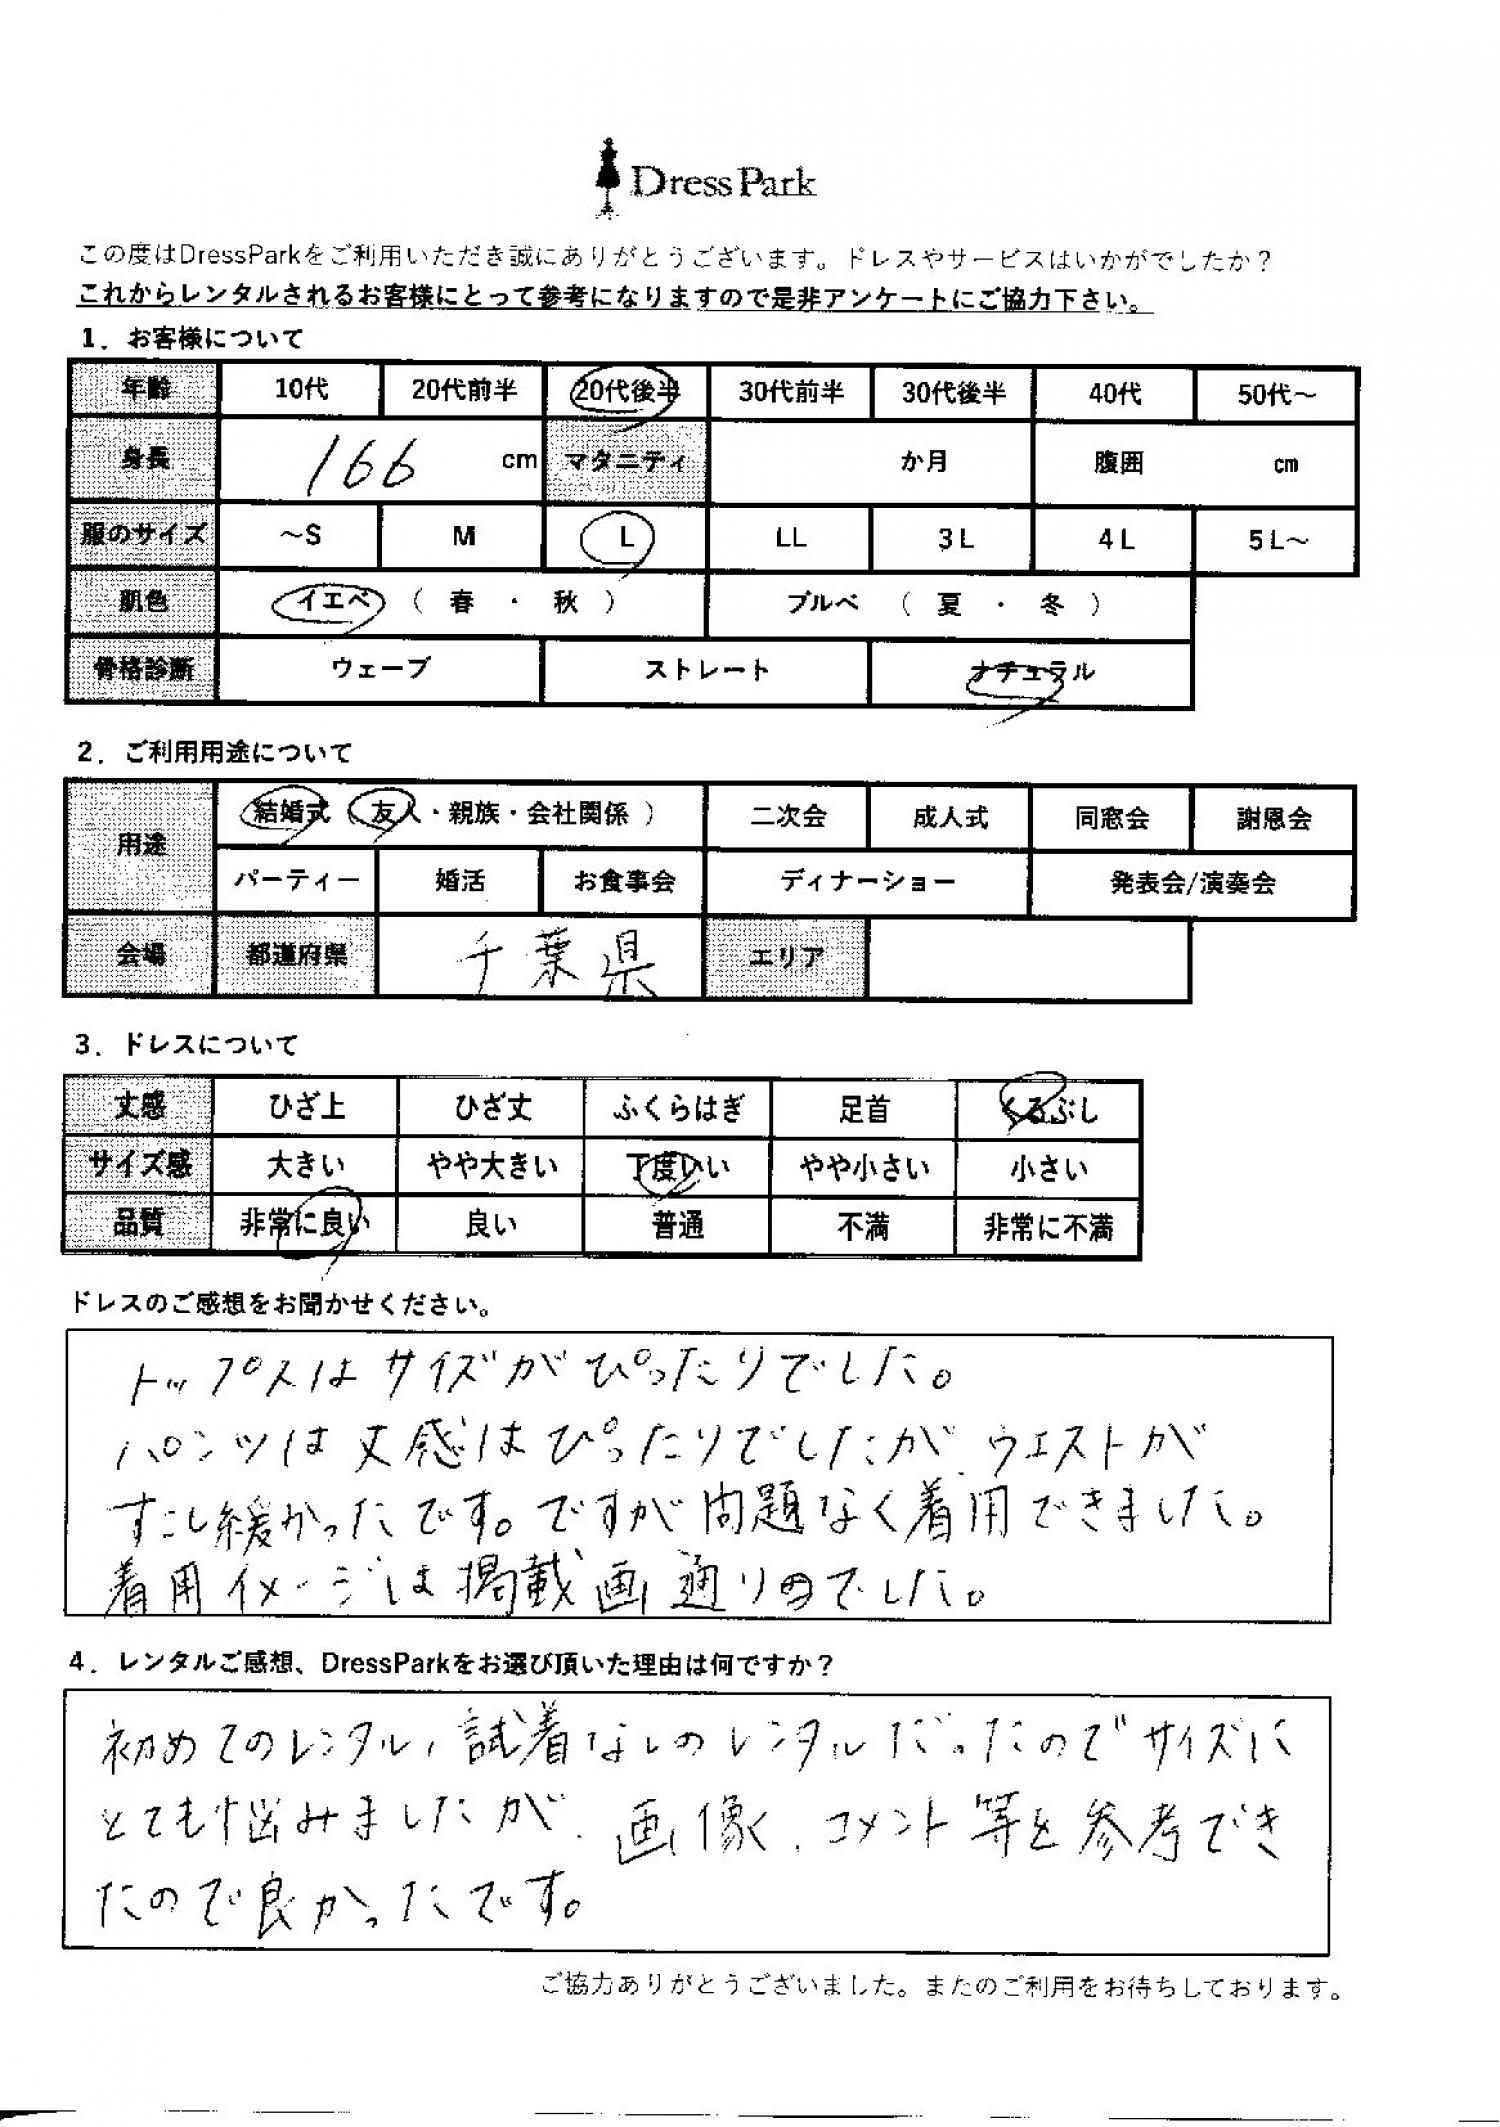 Dress Park
この度はDressParkをご利用いただき誠にありがとうございます。ドレスやサービスはいかがでしたか？
これからレンタルされるお客様にとって参考になりますので是非アンケートにご協力下さい。
1．お客様について
年齢 10代 20代前半 20代後半 30代前半 30代後半 40代 50代～
身長 166 cm マタニティ か月 腹囲 cm
服のサイズ ～S M L LL 3L 4L 5L～
肌色 イエベ（ 春 ・ 秋 ） ブルベ （ 夏 ・ 冬 ）
骨格診断 ウェーブ ストレート ナチュラル
2．ご利用用途について
用途 結婚式（友人・親族・会社関係 ） 二次会 成人式 同窓会 謝恩会
パーティー 婚活 お食事会 ディナーショー 発表会/演奏会
会場 都道府県 千葉県 エリア
3．ドレスについて
丈感 ひざ上 ひざ丈 ふくらはぎ 足首 くるぶし
サイズ感 大きい やや大きい 丁度いい やや小さい 小さい
品質 非常に良い 良い 普通 不満 非常に不満
ドレスのご感想をお聞かせください。
トップスはサイズがぴったりでした。
パンツは丈感はぴったりでしたが、ウエストが
すこし緩かったです。ですが問題なく着用できました。
着用イメージは掲載画通りでした。
4．レンタルご感想、DressParkをお選び頂いた理由は何ですか？
初めてのレンタル、試着なしのレンタルだったのでサイズに
とても悩みましたが、画像、コメント等を参考でき
たので良かったです。
ご協力ありがとうございました。またのご利用をお待ちしております。